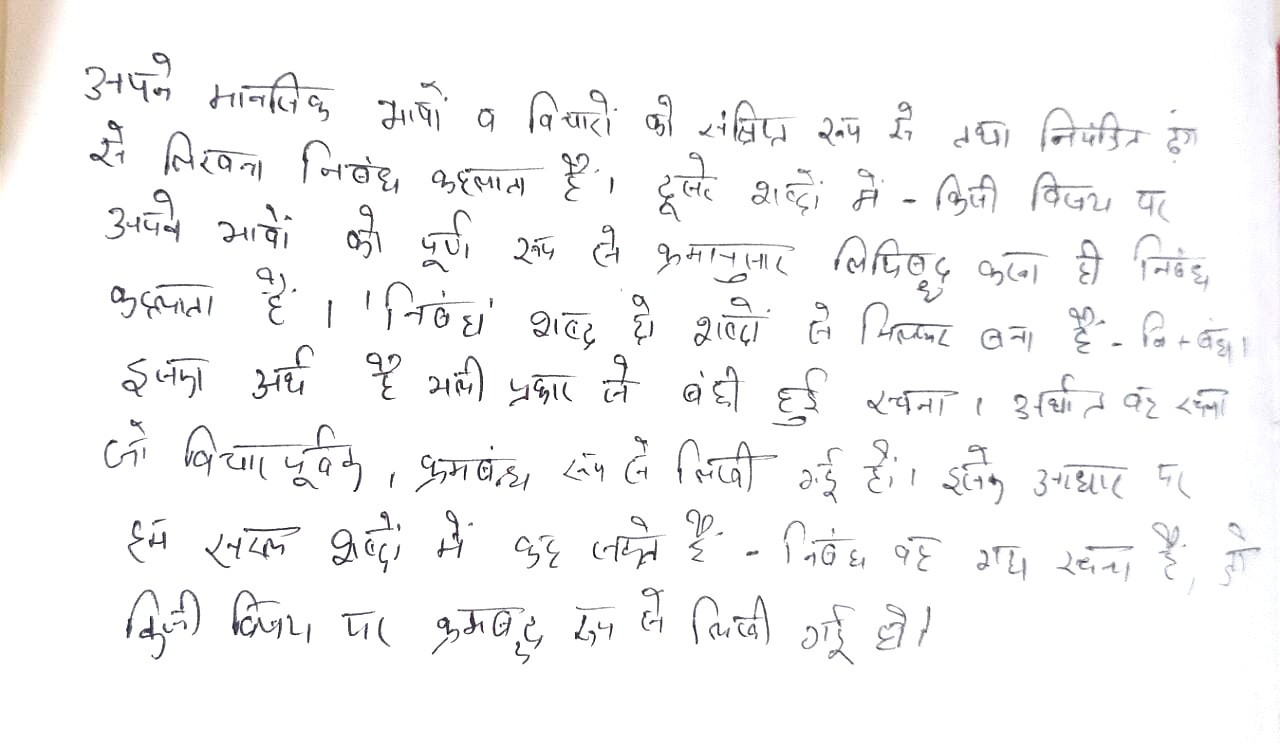 अपने मानसिक भावों व विचारों को संक्षिप्त रूप से तथा नियंत्रित ढंग
से लिखना निबंध कहलाता है। दूसरे शब्दों में - किसी विषय पर
अपने भावों को पूर्ण रूप से क्रमानुसार लिपिबद्ध करना ही निबंध
कहलाता है। 'निबंध' शब्द दो शब्दों से मिलकर बना है - नि + बंध।
इसका अर्थ है भली प्रकार से बंधी हुई रचना। अर्थात वह रचना
जो विचारपूर्वक, क्रमबन्ध रूप से लिखी गई हैं। इसके आधार पर
हम सरल शब्दों में कह सकते हैं - निबंध वह गद्य रचना है, जो
किसी विषय पर क्रमबद्द रूप से लिखी गई हो।